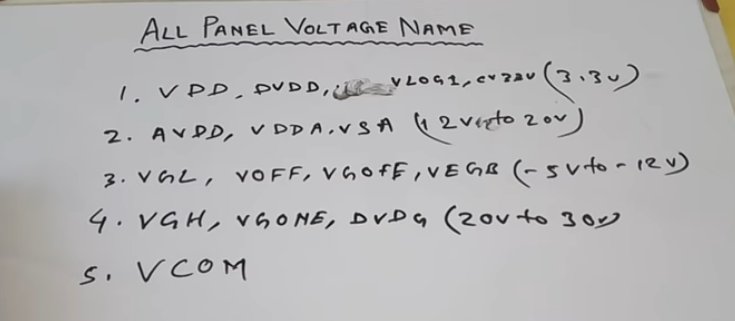 ALL PANEL VOLTAGE NAME
1. VDD, DVDD, VLOG1, CV33V (3.3v)
2. AVDD, VDDA, VSA (12v to 20v)
3. VGL, VOFF, VGOFE, VEGB (-5v to -12v)
4. VGH, VGONE, DVDG (20v to 30v)
5. VCOM